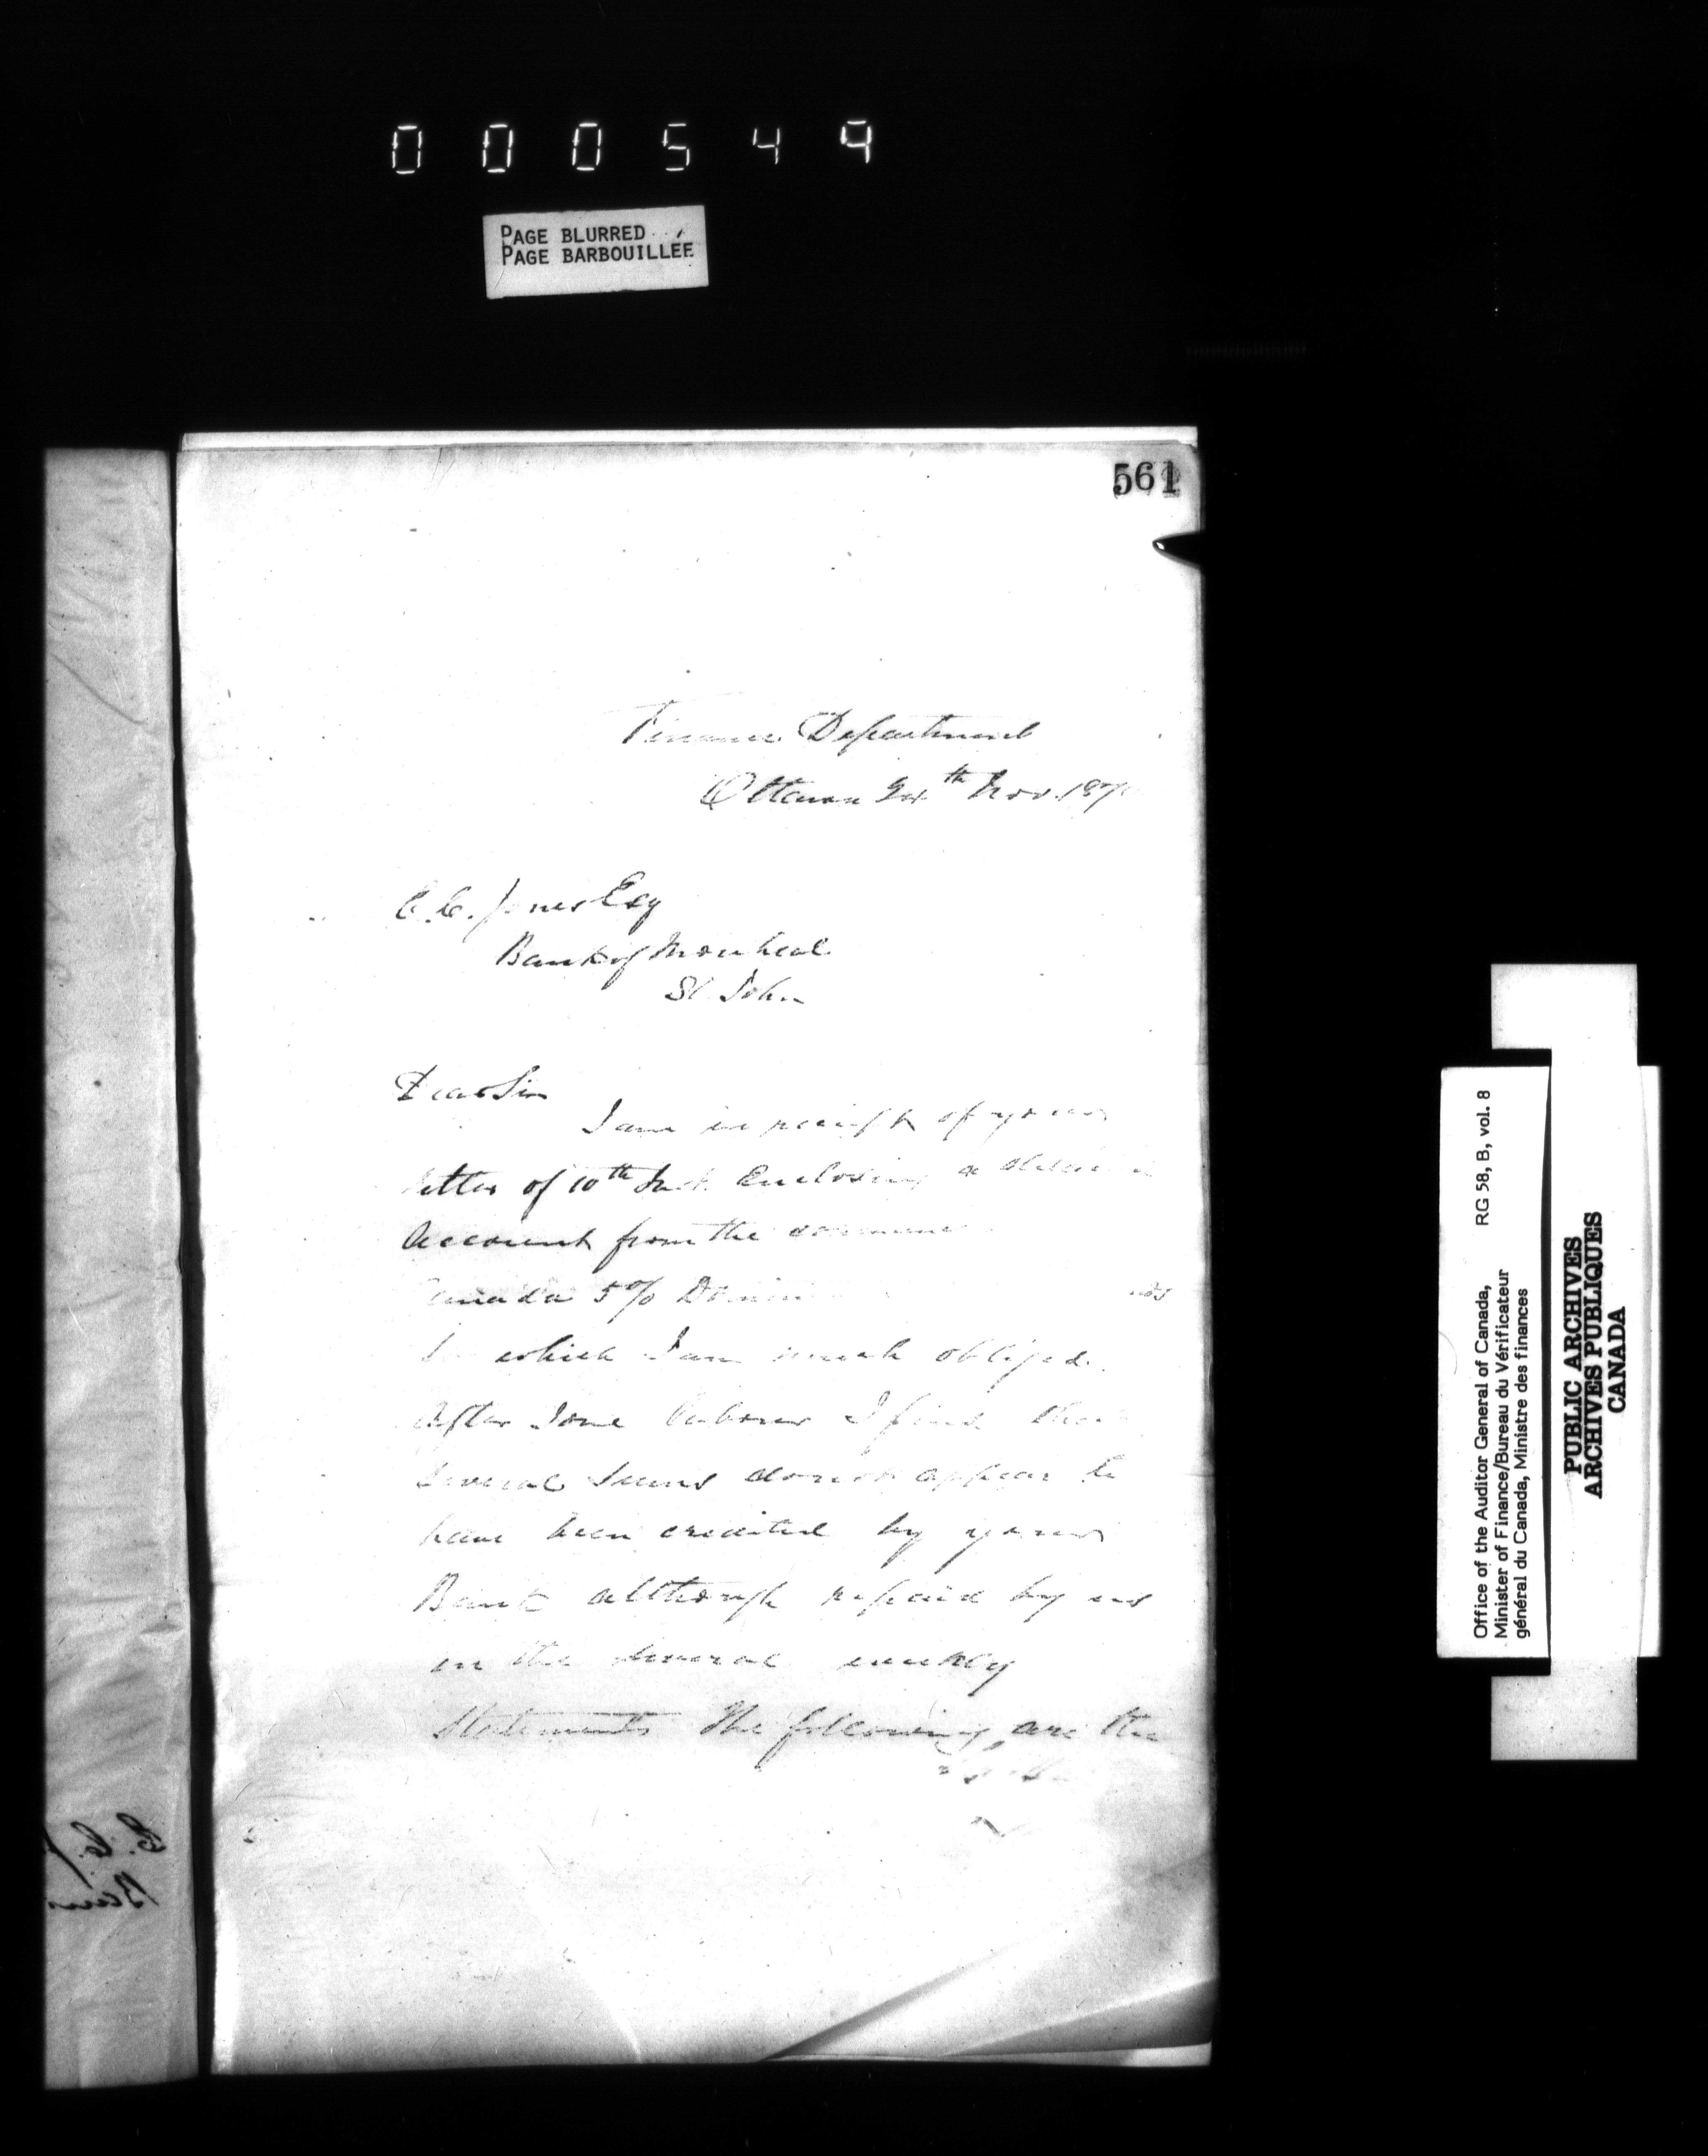 000549
PAGE BLURRED
PAGE BARBOUILLÉE
561
Finance Department
Ottawa th Nov. 187
C.C. Jones Esq
Bank of Montreal
St. John
Dear Sir
I am in receipt of your
letter of 10th Inst. enclosing a
Account from the
Canada 5%
which I am much obliged.
After some labour I find that
several sums do not appear to
have been credited by your
Bank although repaid by us
in the several weekly
Statements The following are the
Office of the Auditor General of Canada, RG 58, B, vol. 8
Minister of Finance/Bureau du Vérificateur
général du Canada, Ministre des finances
PUBLIC ARCHIVES
ARCHIVES PUBLIQUES
CANADA